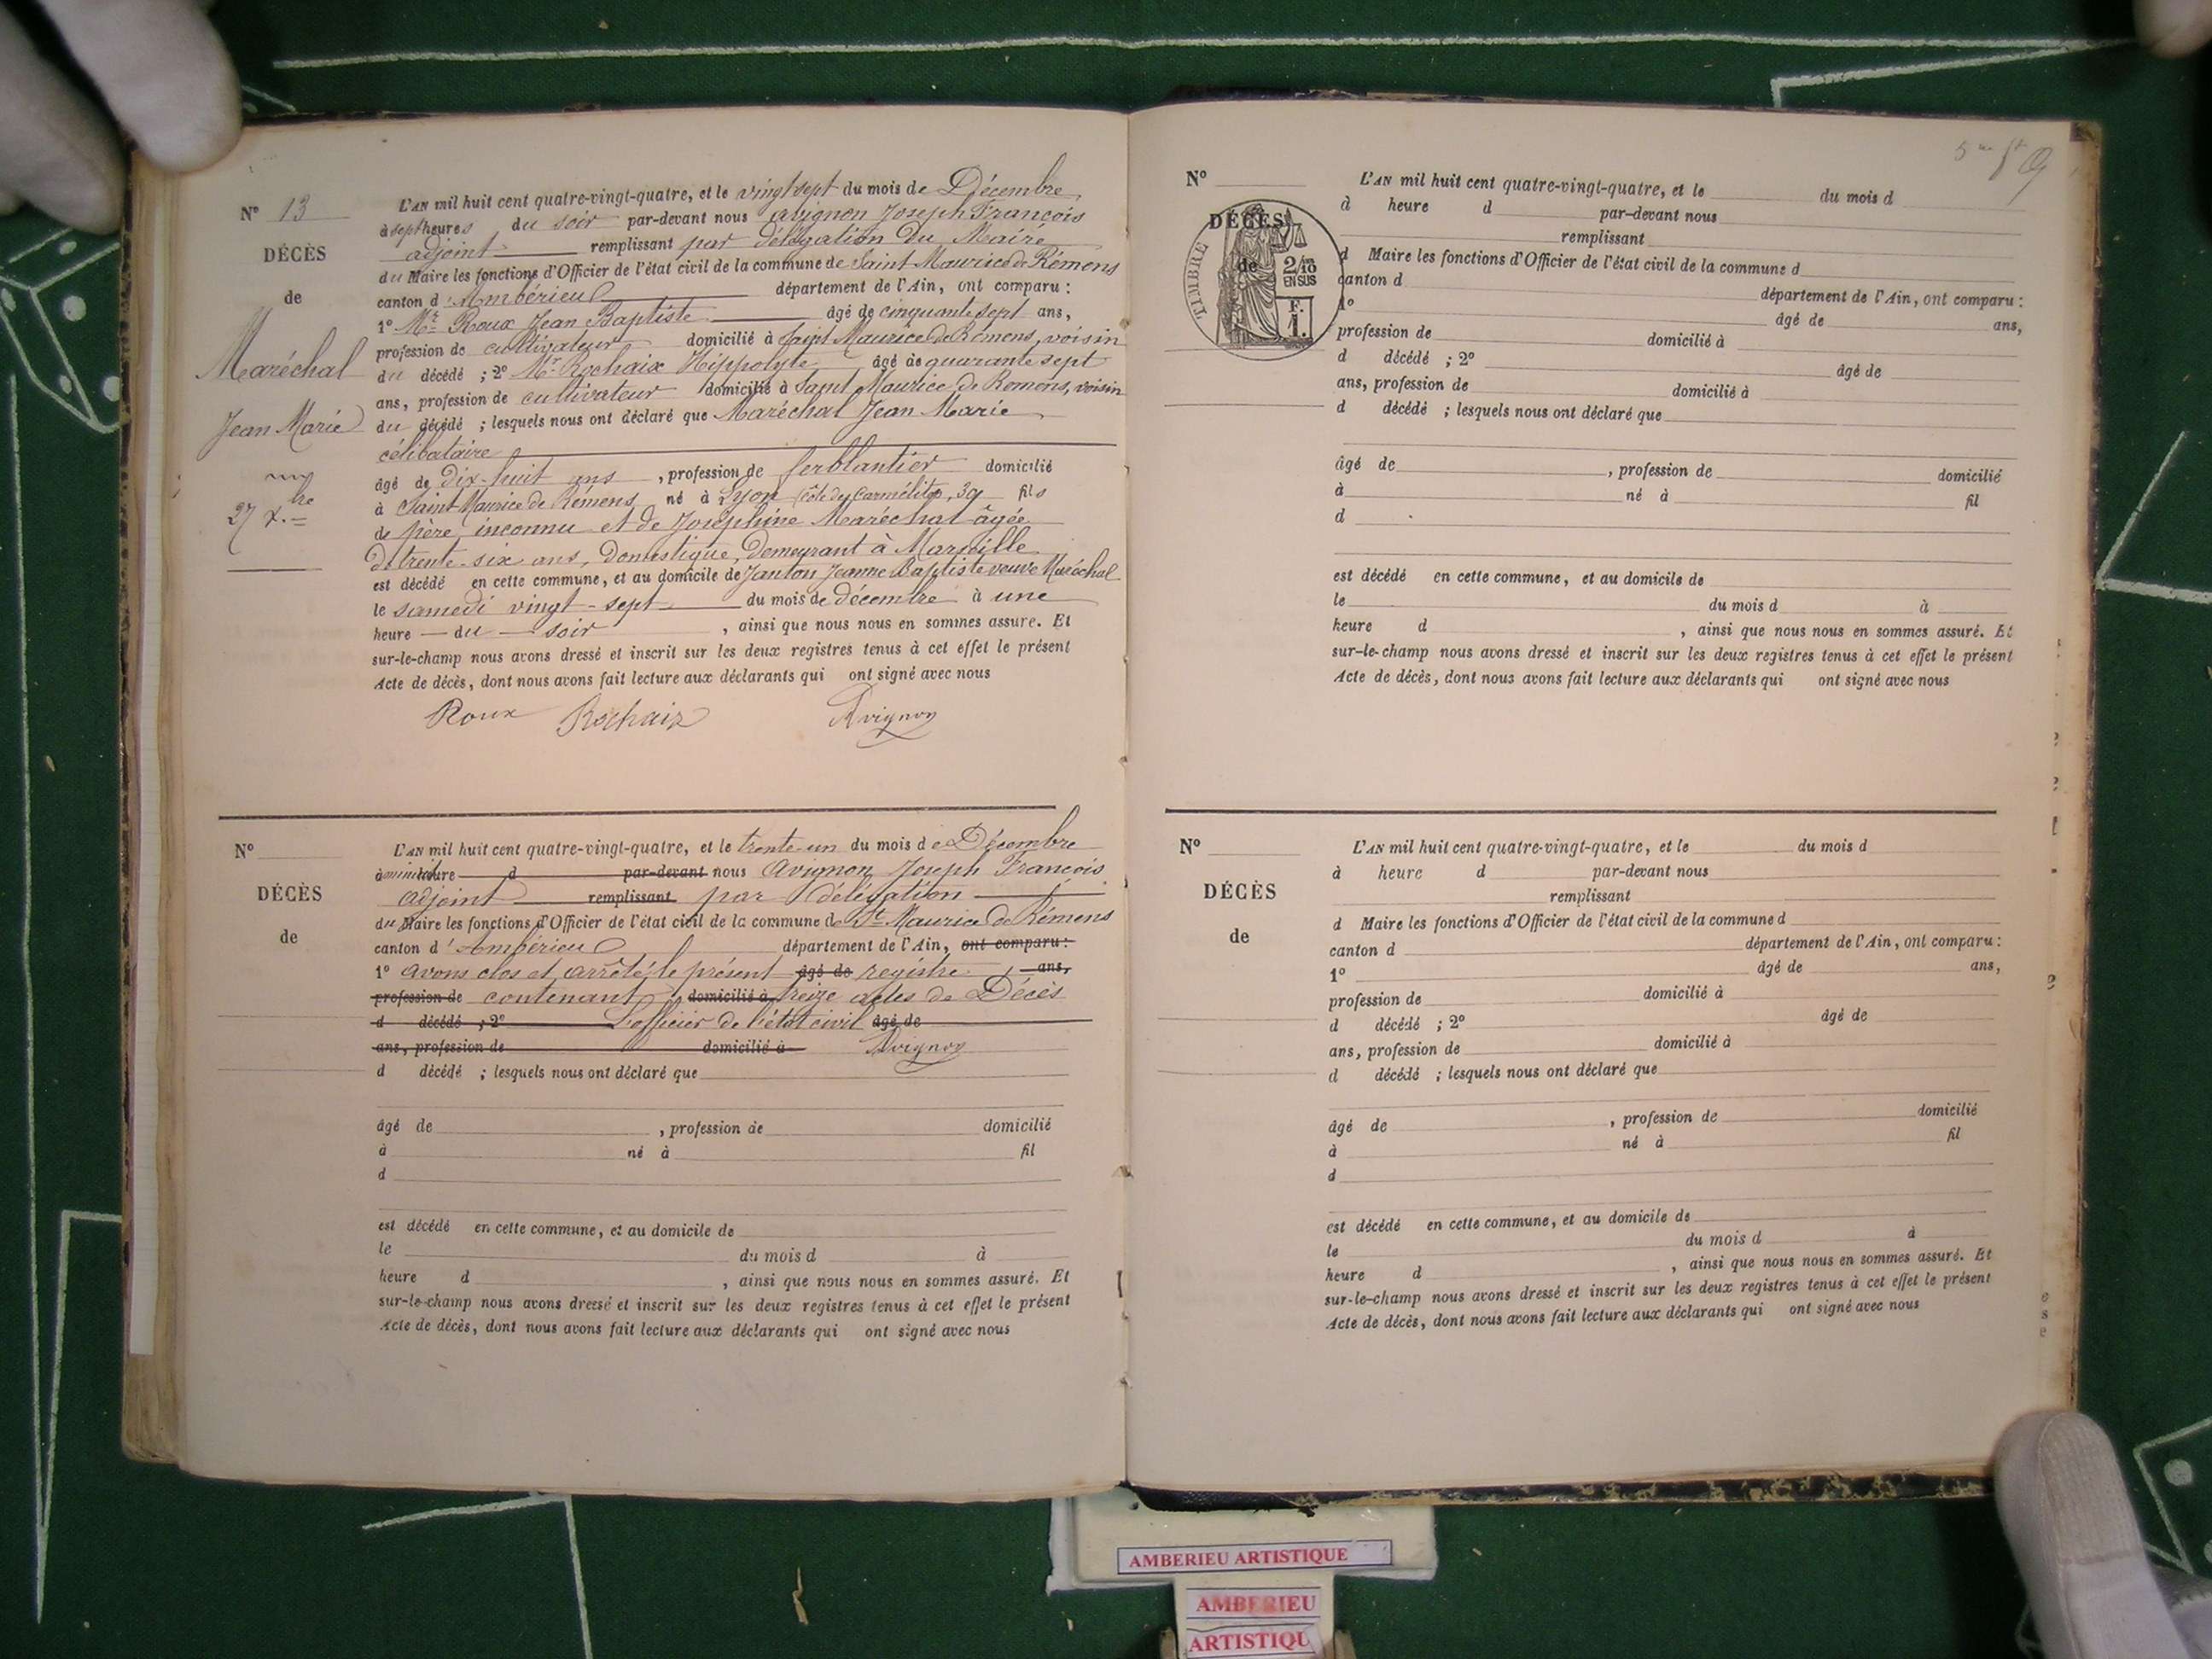 N° 13
DÉCÈS
de
Maréchal
Jean Marie
27 X.bre
L'AN mil huit cent quatre-vingt-quatre, et le vingt sept du mois de Décembre
à sept heures du soir par-devant nous Avignon Joseph François
adjoint remplissant par délégation du Maire
du Maire les fonctions d'Officier de l'état civil de la commune de Saint Maurice de Rémens
canton d'Ambérieu département de l'Ain, ont comparu :
1° Mr Roux Jean Baptiste âgé de cinquante sept ans,
profession de cultivateur domicilié à Saint Maurice de Rémens, voisin
du décédé ; 2° Mr Rochaix Hippolyte âgé de quarante sept
ans, profession de cultivateur domicilié à Saint Maurice de Remens, voisin
du décédé ; lesquels nous ont déclaré que Maréchal Jean Marie
célibataire
âgé de dix-huit ans , profession de ferblantier domicilié
à Saint Maurice de Rémens né à Lyon côte des Carmélites, 39 fils
de père inconnu et de Joséphine Maréchal âgée
de trente-six ans, domestique, demeurant à Marseille
est décédé en cette commune, et au domicile de Janton Jeanne Baptiste veuve Maréchal
le samedi vingt-sept du mois de décembre à une
heure du soir , ainsi que nous nous en sommes assuré. Et
sur-le-champ nous avons dressé et inscrit sur les deux registres tenus à cet effet le présent
Acte de décès, dont nous avons fait lecture aux déclarants qui ont signé avec nous
Roux Rochaix Avignon
N°
DÉCÈS
de
L'AN mil huit cent quatre-vingt-quatre, et le trente-un du mois de Décembre
à minuit heure d par-devant nous Avignon Joseph François
adjoint remplissant par délégation
du Maire les fonctions d'Officier de l'état civil de la commune de St Maurice de Rémens
canton d'Ambérieu département de l'Ain, ont comparu :
1° avons clos et arrêté le présent âgé de registre ans,
profession de contenant domicilié à treize actes de Décès
d décédé ; 2° L'officier de l'état civil âgé de
ans, profession de domicilié à Avignon
d décédé ; lesquels nous ont déclaré que
âgé de , profession de domicilié
à né à fil
d
est décédé en cette commune, et au domicile de
le du mois d à
heure d , ainsi que nous nous en sommes assuré. Et
sur-le-champ nous avons dressé et inscrit sur les deux registres tenus à cet effet le présent
Acte de décès, dont nous avons fait lecture aux déclarants qui ont signé avec nous
N°
DÉCÈS
de
TIMBRE
2/10
EN SUS
F.
1.
L'AN mil huit cent quatre-vingt-quatre, et le du mois d
à heure d par-devant nous
remplissant
d Maire les fonctions d'Officier de l'état civil de la commune d
canton d département de l'Ain, ont comparu :
1° âgé de ans,
profession de domicilié à
d décédé ; 2° âgé de
ans, profession de domicilié à
d décédé ; lesquels nous ont déclaré que
âgé de , profession de domicilié
à né à fil
d
est décédé en cette commune, et au domicile de
le du mois d à
heure d , ainsi que nous nous en sommes assuré. Et
sur-le-champ nous avons dressé et inscrit sur les deux registres tenus à cet effet le présent
Acte de décès, dont nous avons fait lecture aux déclarants qui ont signé avec nous
N°
DÉCÈS
de
L'AN mil huit cent quatre-vingt-quatre, et le du mois d
à heure d par-devant nous
remplissant
d Maire les fonctions d'Officier de l'état civil de la commune d
canton d département de l'Ain, ont comparu :
1° âgé de ans,
profession de domicilié à
d décédé ; 2° âgé de
ans, profession de domicilié à
d décédé ; lesquels nous ont déclaré que
âgé de , profession de domicilié
à né à fil
d
est décédé en cette commune, et au domicile de
le du mois d à
heure d , ainsi que nous nous en sommes assuré. Et
sur-le-champ nous avons dressé et inscrit sur les deux registres tenus à cet effet le présent
Acte de décès, dont nous avons fait lecture aux déclarants qui ont signé avec nous
AMBERIEU ARTISTIQUE
AMBERIEU
ARTISTIQU